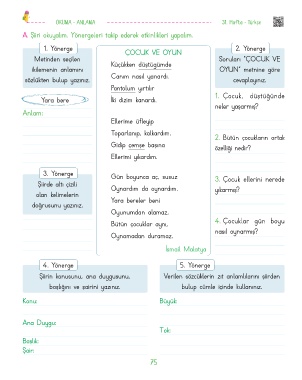 OKUMA - ANLAMA
31. Hafta - Türkçe
A. Şiiri okuyalım. Yönergeleri takip ederek etkinlikleri yapalım.
1. Yönerge
Metinden seçilen
ikilemenin anlamını
sözlükten bulup yazınız.
Yara bere
Anlam:
3. Yönerge
Şiirde altı çizili
olan kelimelerin
doğrusunu yazınız.
ÇOCUK VE OYUN
Küçükken düştüğümde
Canım nasıl yanardı.
Pantolum yırtılır
İki dizim kanardı.
Ellerime üfleyip
Toparlanıp, kalkardım.
Gidip çeşme başına
Ellerimi yıkardım.
Gün boyunca aç, susuz
Oynardım da oynardım.
Yara bereler beni
Oyunumdan alamaz.
Bütün çocuklar aynı,
Oynamadan duramaz.
İsmail Malatya
2. Yönerge
Sorulan "ÇOCUK VE
OYUN" metnine göre
cevaplayınız.
1. Çocuk, düştüğünde
neler yaşarmış?
2. Bütün çocukların ortak
özelliği nedir?
3. Çocuk ellerini nerede
yıkarmış?
4. Çocuklar gün boyu
nasıl oynarmış?
4. Yönerge
Şiirin konusunu, ana duygusunu,
başlığını ve şairini yazınız.
Konu:
Ana Duygu:
Başlık:
Şair:
5. Yönerge
Verilen sözcüklerin zıt anlamlılarını şiirden
bulup cümle içinde kullanınız.
Büyük:
Tok:
75